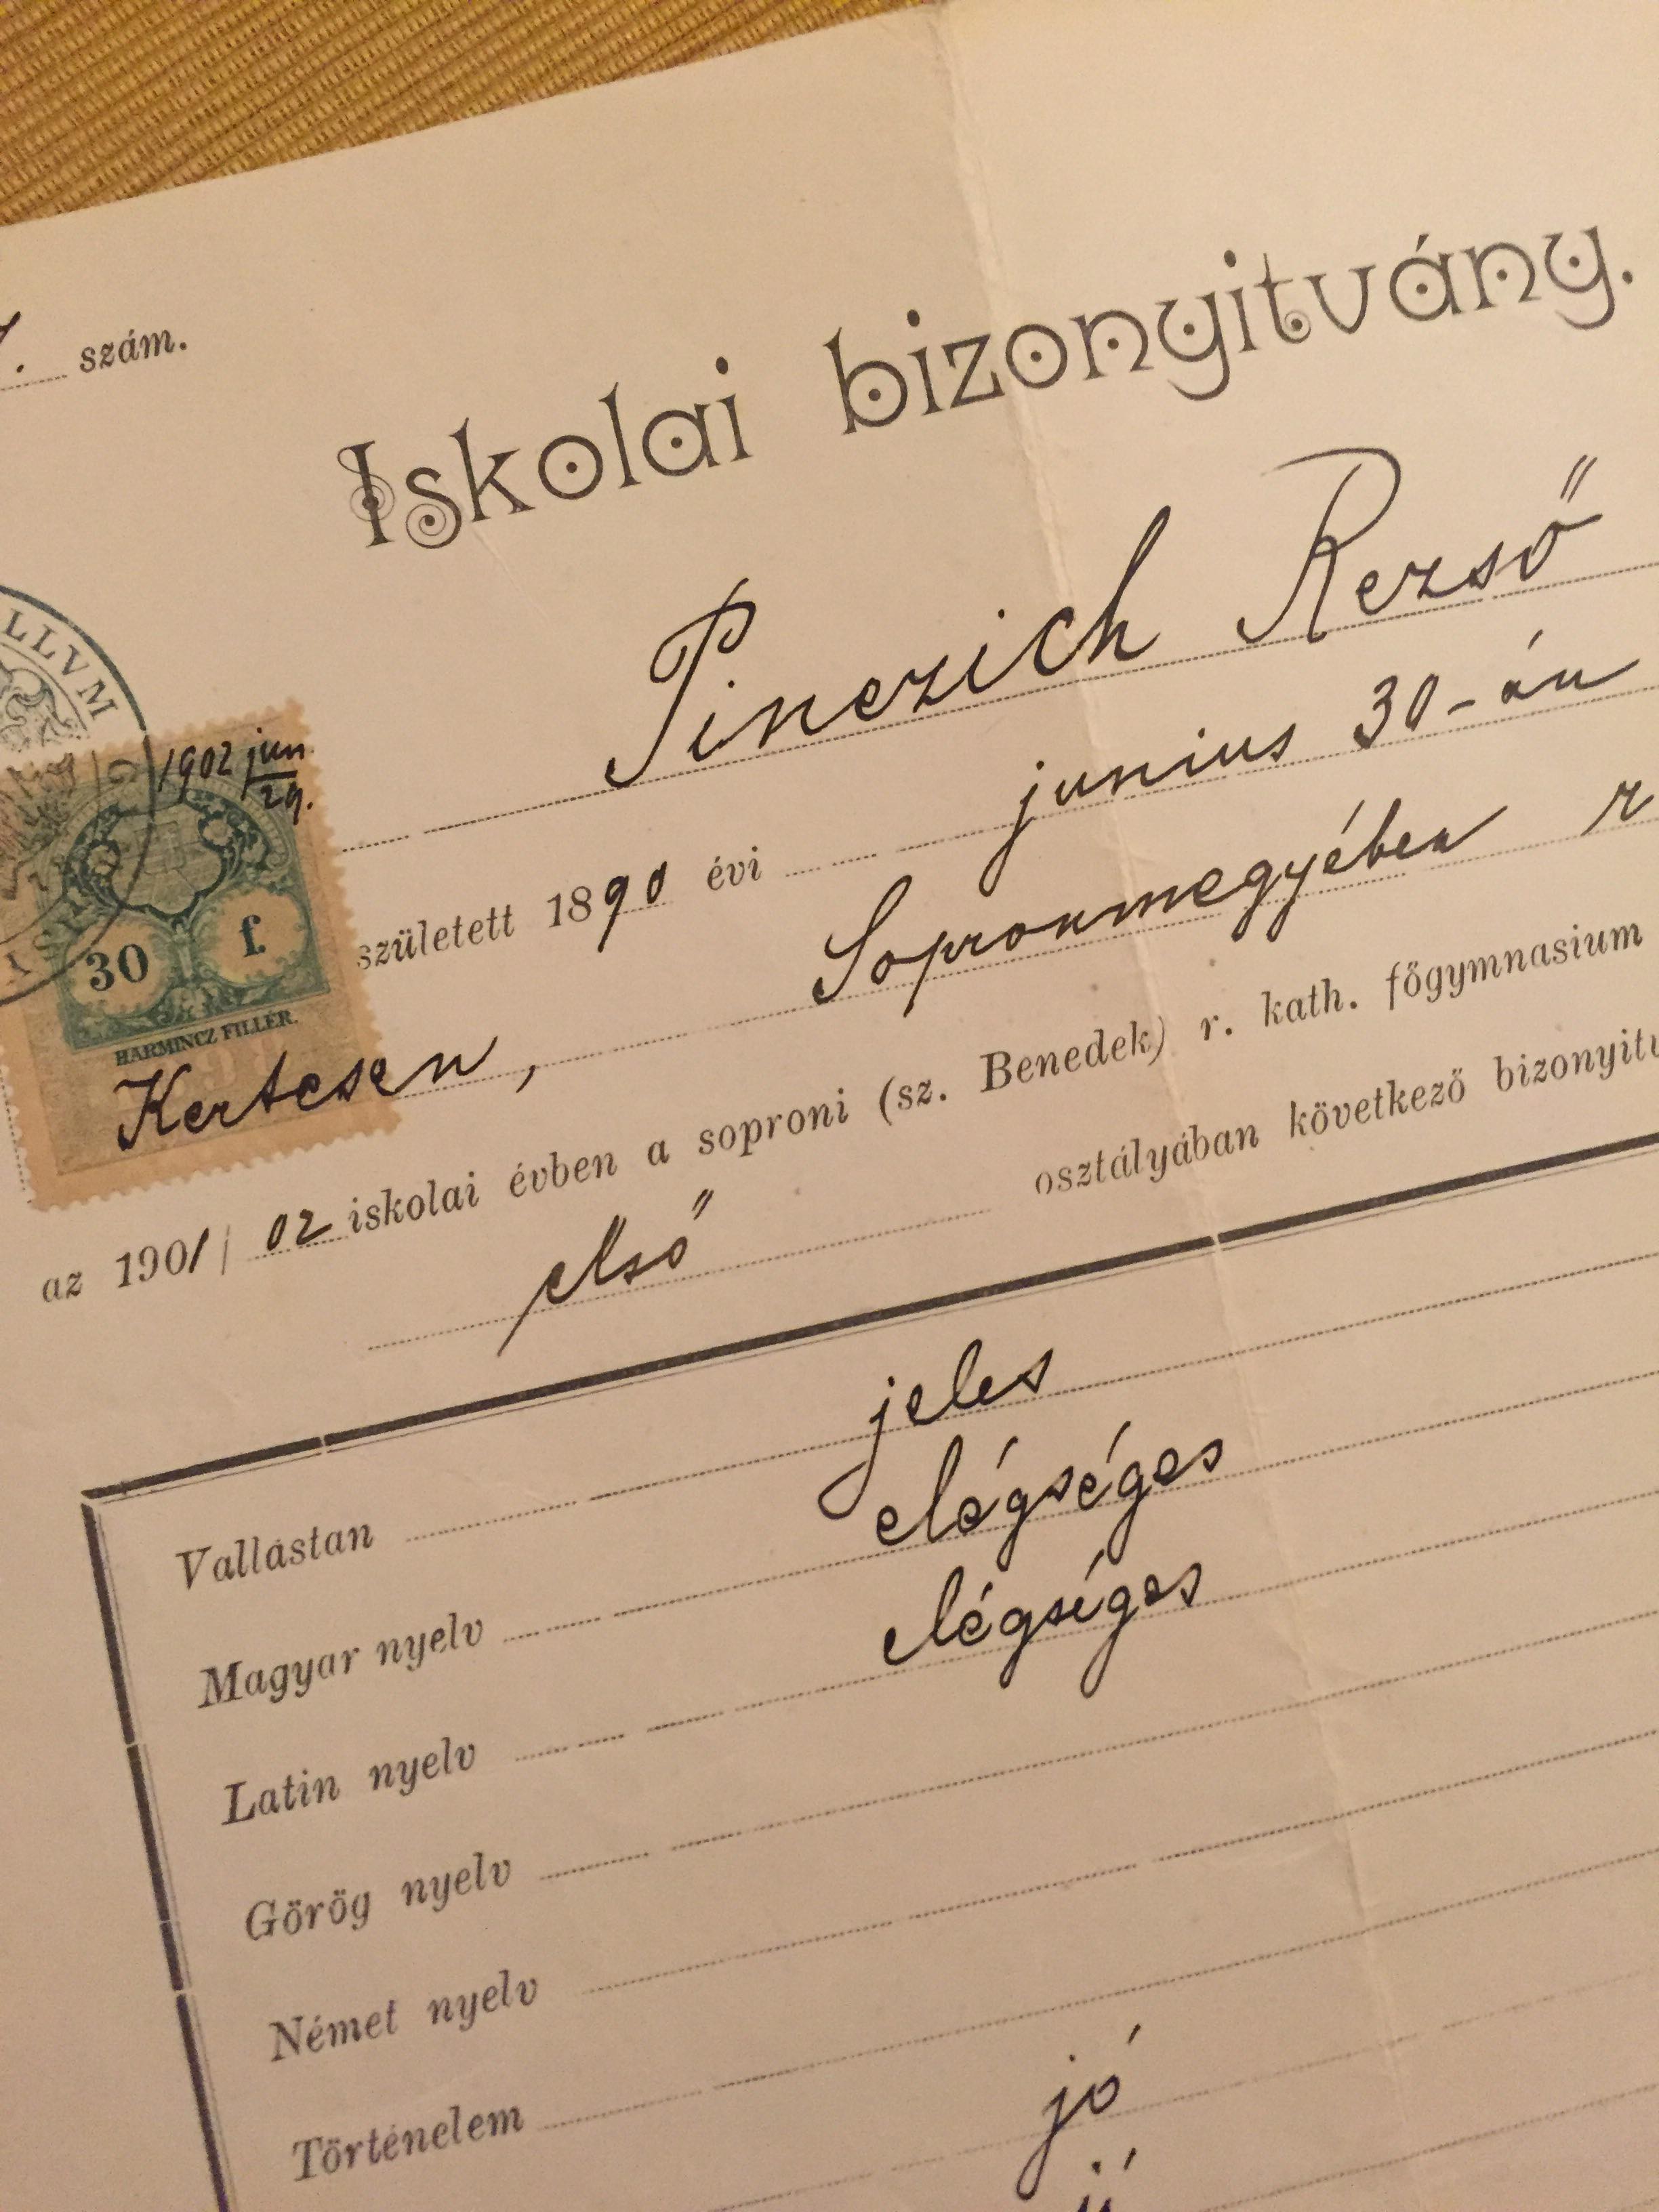 szám.
Iskolai bizonyitvány.
LLVM
Pinezich Rezső
1902 jun.
29.
született 1890 évi junius 30-án
30 f.
HARMINCZ FILLÉR.
Kertesen, Sopronmegyében r
az 1901/02 iskolai évben a soproni (sz. Benedek) r. kath. főgymnasium
első osztályában következő bizonyitv
Vallástan jeles
Magyar nyelv elégséges
Latin nyelv elégséges
Görög nyelv
Német nyelv
Történelem
jó